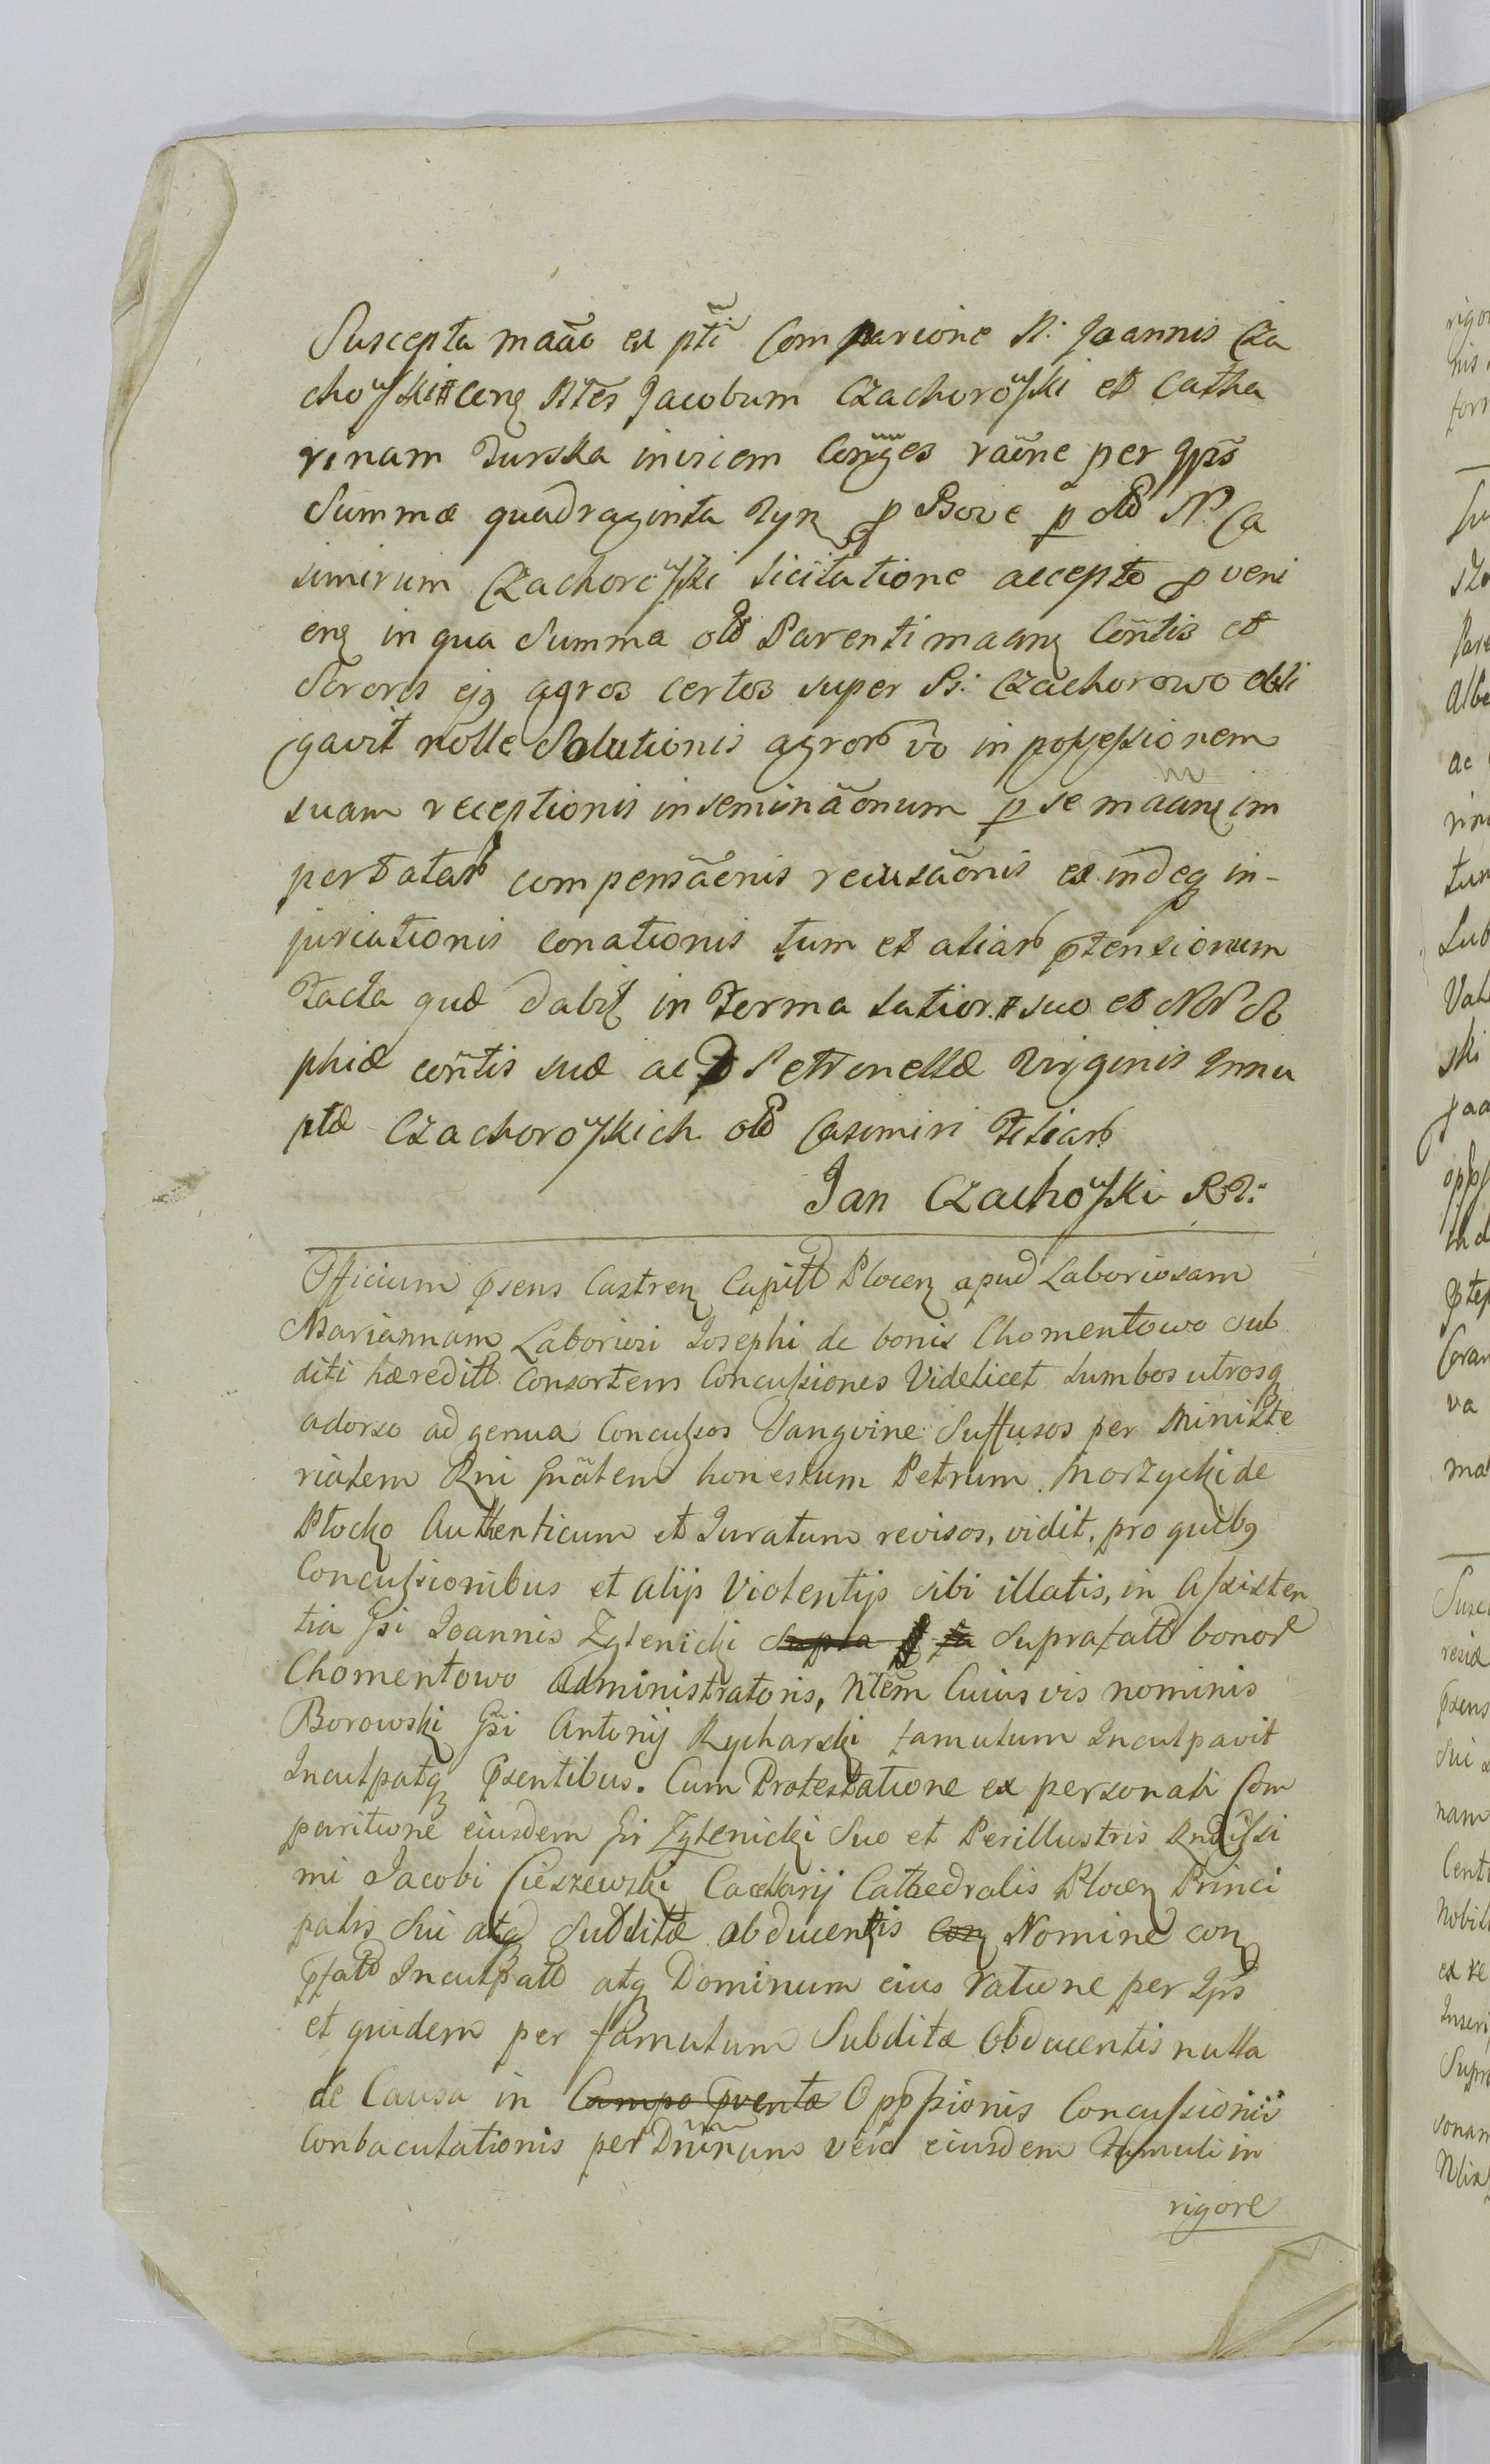 Suscepta mãão ex ptĩ Comparicione N: Joannis Cza
chowski cnq Ntes Jacobum Czachorowski et Catha
rinam Turska invicem Conĩges raõne per Ipũs
Summæ quadraginta Tyn p Bove p old N. Ca
simirum Czachorowski licitatione accepto pveni
enq in qua Summa old Parenti maanq Conẽtis et
Sororis ejq agros certos super Ps: Czachorowo obli
gavit nolle Solutionis agrorb vo in possessionem
suam receptionis inseminãonum p se maãnq im
portatarb compensãonis recusãonis ex indeq in-
juriationis conationis tum et aliarb ptensionum
Facta quæ dabit in Terma latior. suo et NN So
phiæ conẽtis suæ ac Petronellæ Virginis Innu
ptæ Czachorowskich old Casimiri Filiarb
Jan Czachowski
Officium psens Castren Capitld Plocen apud Laboriosam
Mariannam Laboriosi Josephi de bonis Chomentowo sub
diti hæreditt Consortem Concussiones Videlicet Lumbos utrosq
adorso ad genua Concussos Sangvine Suffusos per Ministe
rialem Rni Gnãlem honestum Petrum Morzycki de
Plocko Authenticum et Juratum revisos, vidit, pro quibq
Concussionibus et alijs Violentijs sibi illatis, in Assisten
tia Gsi Joannis Zglenicki Supra Suprafatt bonor
Chomentowo Administratoris, Ntẽm Cuius vis nominis
Borowski Gsi Antonij Rycharski famulum Inculpavit
Inculpatq Psentibus. Cum Protestatione ex personali Com
paritione eiusdem Gsi Zglenicki Suo et Perillustris Rndissi
mi Jacobi Cieszewski Cathedralis Plocen Princi
palis Sui atq Subditæ abducentis Con Nomine con
pfatt Inculpatt atq Dominum eius ratione per Ipũs
et quidem per famulum Subditæ Obducentis nulla
de Causa in Campo Oppssionis Concussionis
Conbaculationis per Dnĩnum vero eiusdem Famuli in
rigore